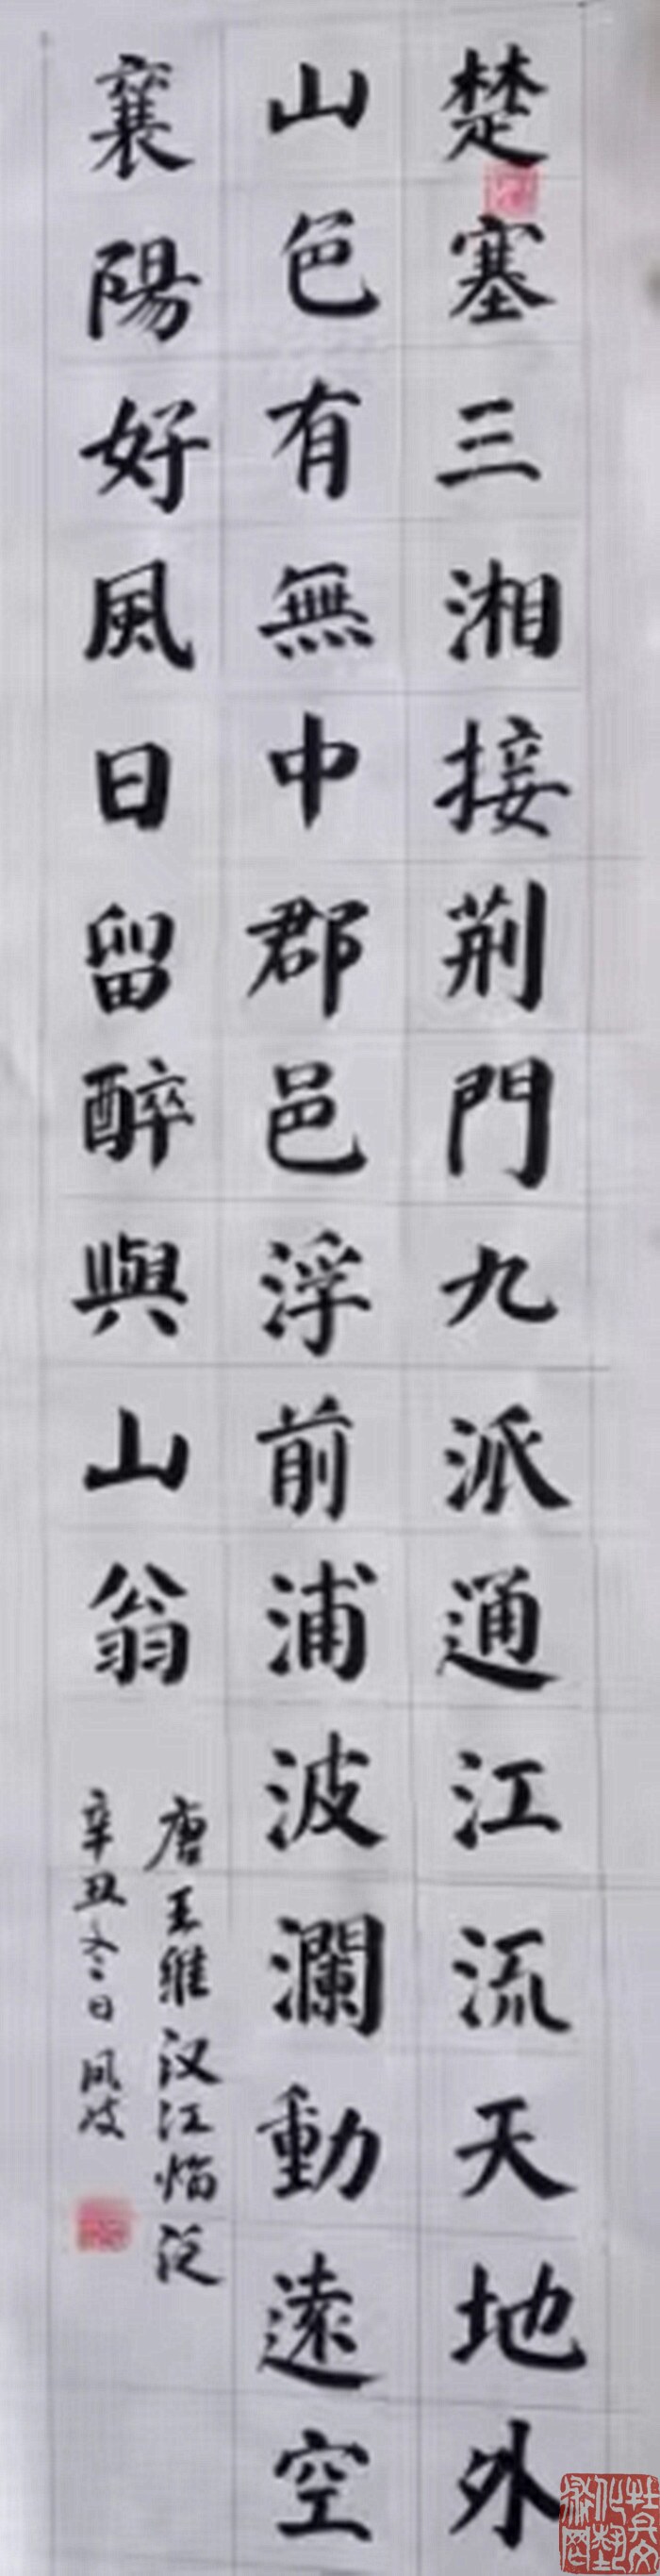 楚塞三湘接荆門九派通江流天地外
山色有無中郡邑浮前浦波瀾動遠空
襄陽好風日留醉與山翁
唐王维汉江临泛
辛丑冬日风波